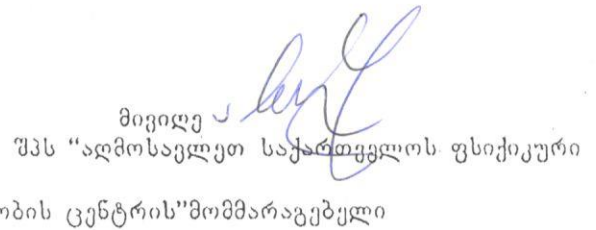 მივიღე
შპს “აღმოსავლეთ საქართველოს ფსიქიკური
ობის ცენტრის”მომმარაგებელი